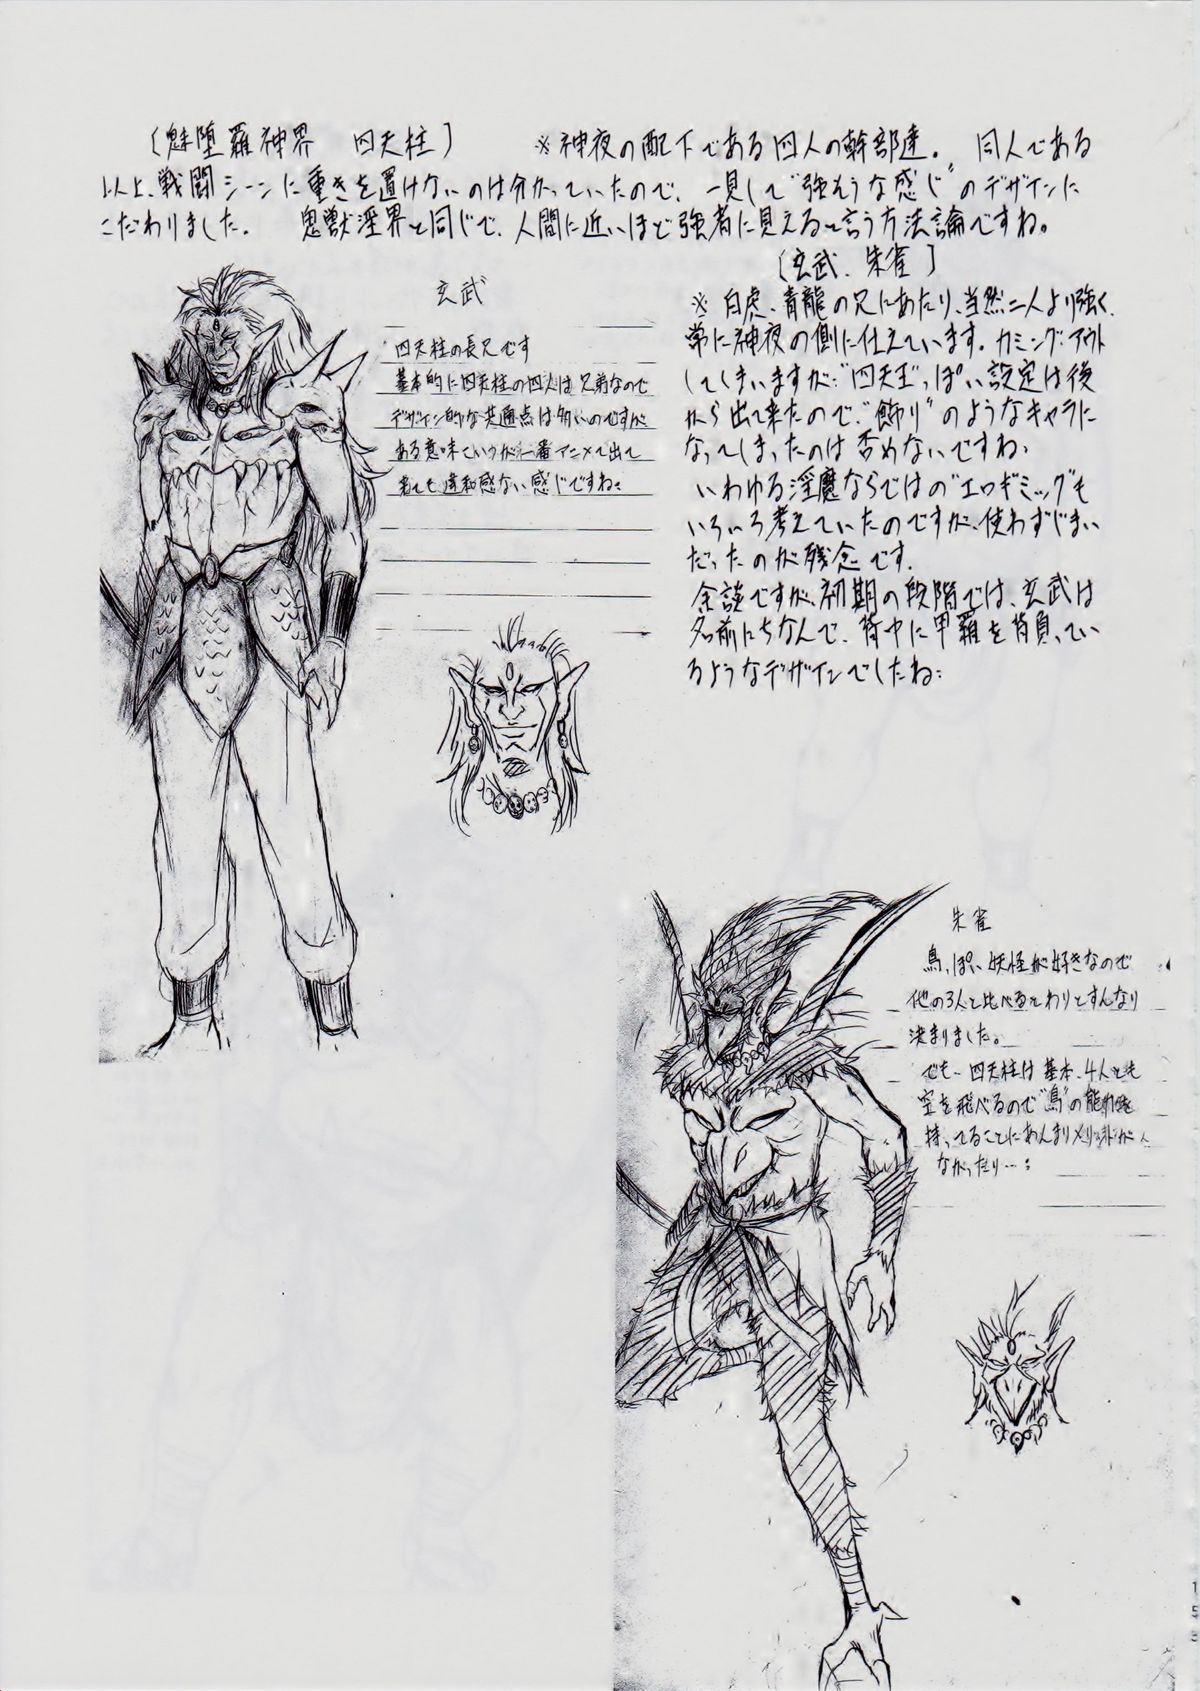 〔魅堕羅神界 四天柱〕 ※神夜の配下である四人の幹部達。 同人である
以上、戦闘シーンに重きを置けないのは分かっていたので、一見して“強そうな感じ”のデザインに
こだわりました。 鬼獣淫界と同じで、人間に近いほど強者に見えると言う方法論ですね。
〔玄武、朱雀〕
※ 白虎、青龍の兄にあたり、当然二人より強く、
常に神夜の側に仕えています。カミングアウト
してしまいますが“四天王”っぽい設定は後
から出て来たので、“飾り”のようなキャラに
なってしまったのは否めないですね、
いわゆる淫魔ならではの“エロギミック”も
いろいろ考えていたのですが、使わずじまい
だったのが残念です.
余談ですが、初期の段階では、玄武は
名前にちなんで、背中に甲羅を背負ってい
るようなデザインでしたね:
玄武
四天柱の長兄です
基本的に四天柱の四人は兄弟なので
デザイン的な共通点は多いのですが
ある意味でコウガ一番アニメで出て
来ても違和感ない感じですね:
朱雀
鳥っぽい妖怪が好きなので
他の3人と比べるとわりとすんなり
決まりました。
でも、四天柱は基本、4人とも
空を飛べるので“鳥”の能力を
持ってることにあんまりメリットが
なかったり…:
153